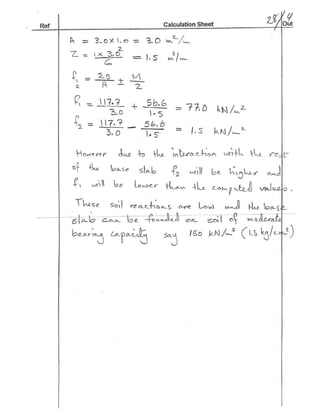 Ref Calculation Sheet 28/4 Out
A = 3.0 x 1.0 = 3.0 m²/m
Z = 1 x 3.0² / 6 = 1.5 m³/m
f₁,₂ = Σq / A ± M / Z
f₁ = 117.7 / 3.0 + 56.6 / 1.5 = 77.0 kN/m²
f₂ = 117.7 / 3.0 - 56.6 / 1.5 = 1.5 kN/m²
However due to the interaction with the rest
of the base slab f₂ will be higher and
f₁ will be lower than the computed values.
These soil reactions are low and the base
slab can be founded on soil of moderate
bearing capacity say 150 kN/m² (1.5 kg/cm²)